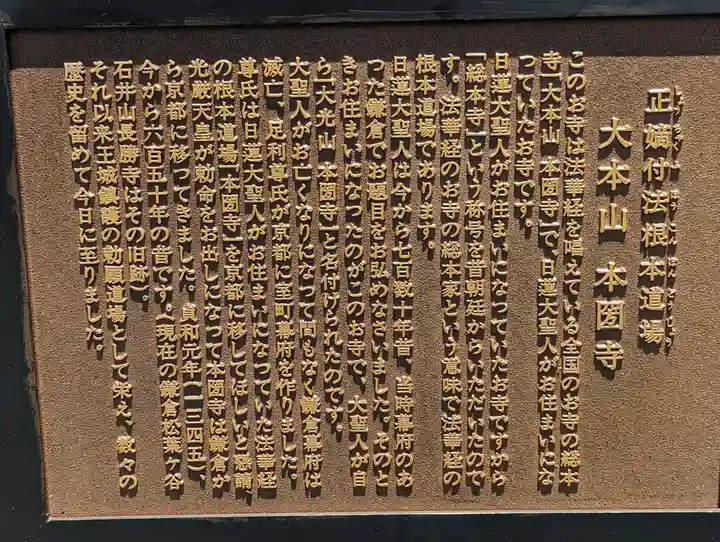 正嫡付法根本道場
大本山 本圀寺
このお寺は法華経を唱えている全国のお寺の総本
寺「大本山 本圀寺」で、日蓮大聖人がお住まいにな
っていたお寺です。
日蓮大聖人がお住まいになっていたお寺ですから
「総本寺」という称号を昔朝廷からいただいたので
す。法華経のお寺の総本家という意味で法華経の
根本道場であります。
日蓮大聖人は今から七百数十年昔、当時幕府のあ
った鎌倉でお題目をお弘めなさいました。そのと
きお住まいになったのがこのお寺で、大聖人が自
ら「大光山 本圀寺」と名付けられたのです。
大聖人がお亡くなりになって間もなく鎌倉幕府は
滅亡、足利尊氏が京都に室町幕府を作りました。
尊氏は日蓮大聖人がお住まいになっていた法華経
の根本道場「本圀寺」を京都に移してほしいと懇請、
光厳天皇が勅命をお出しになって本圀寺は鎌倉か
ら京都に移ってきました。貞和元年(一三四五)、
今から六百五十年の昔です。(現在の鎌倉松葉ヶ谷
石井山長勝寺はその旧跡)。
それ以来王城鎮護の勅願道場として栄え、数々の
歴史を留めて今日に至りました。